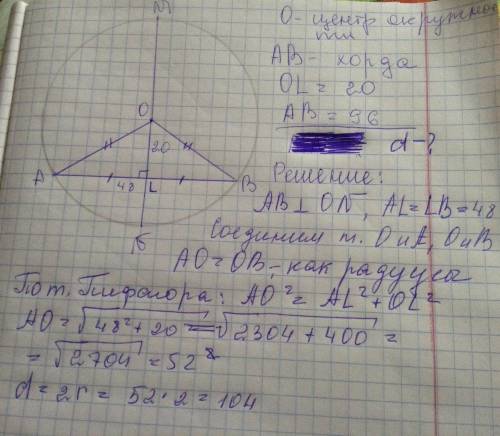 M
O - центр окружнос
ти
AB - хорда
OL = 20
AB = 96
d - ?
O
20
A
48
L
B
Решение:
AB ⊥ ON, AL = LB = 48
Соединим т. O и A, O и B
AO = OB, - как радууса
По т. Пифагора: AO² = AL² + OL²
AO = √48² + 20² = √2304 + 400 =
= √2704 = 52
d = 2r = 52 · 2 = 104